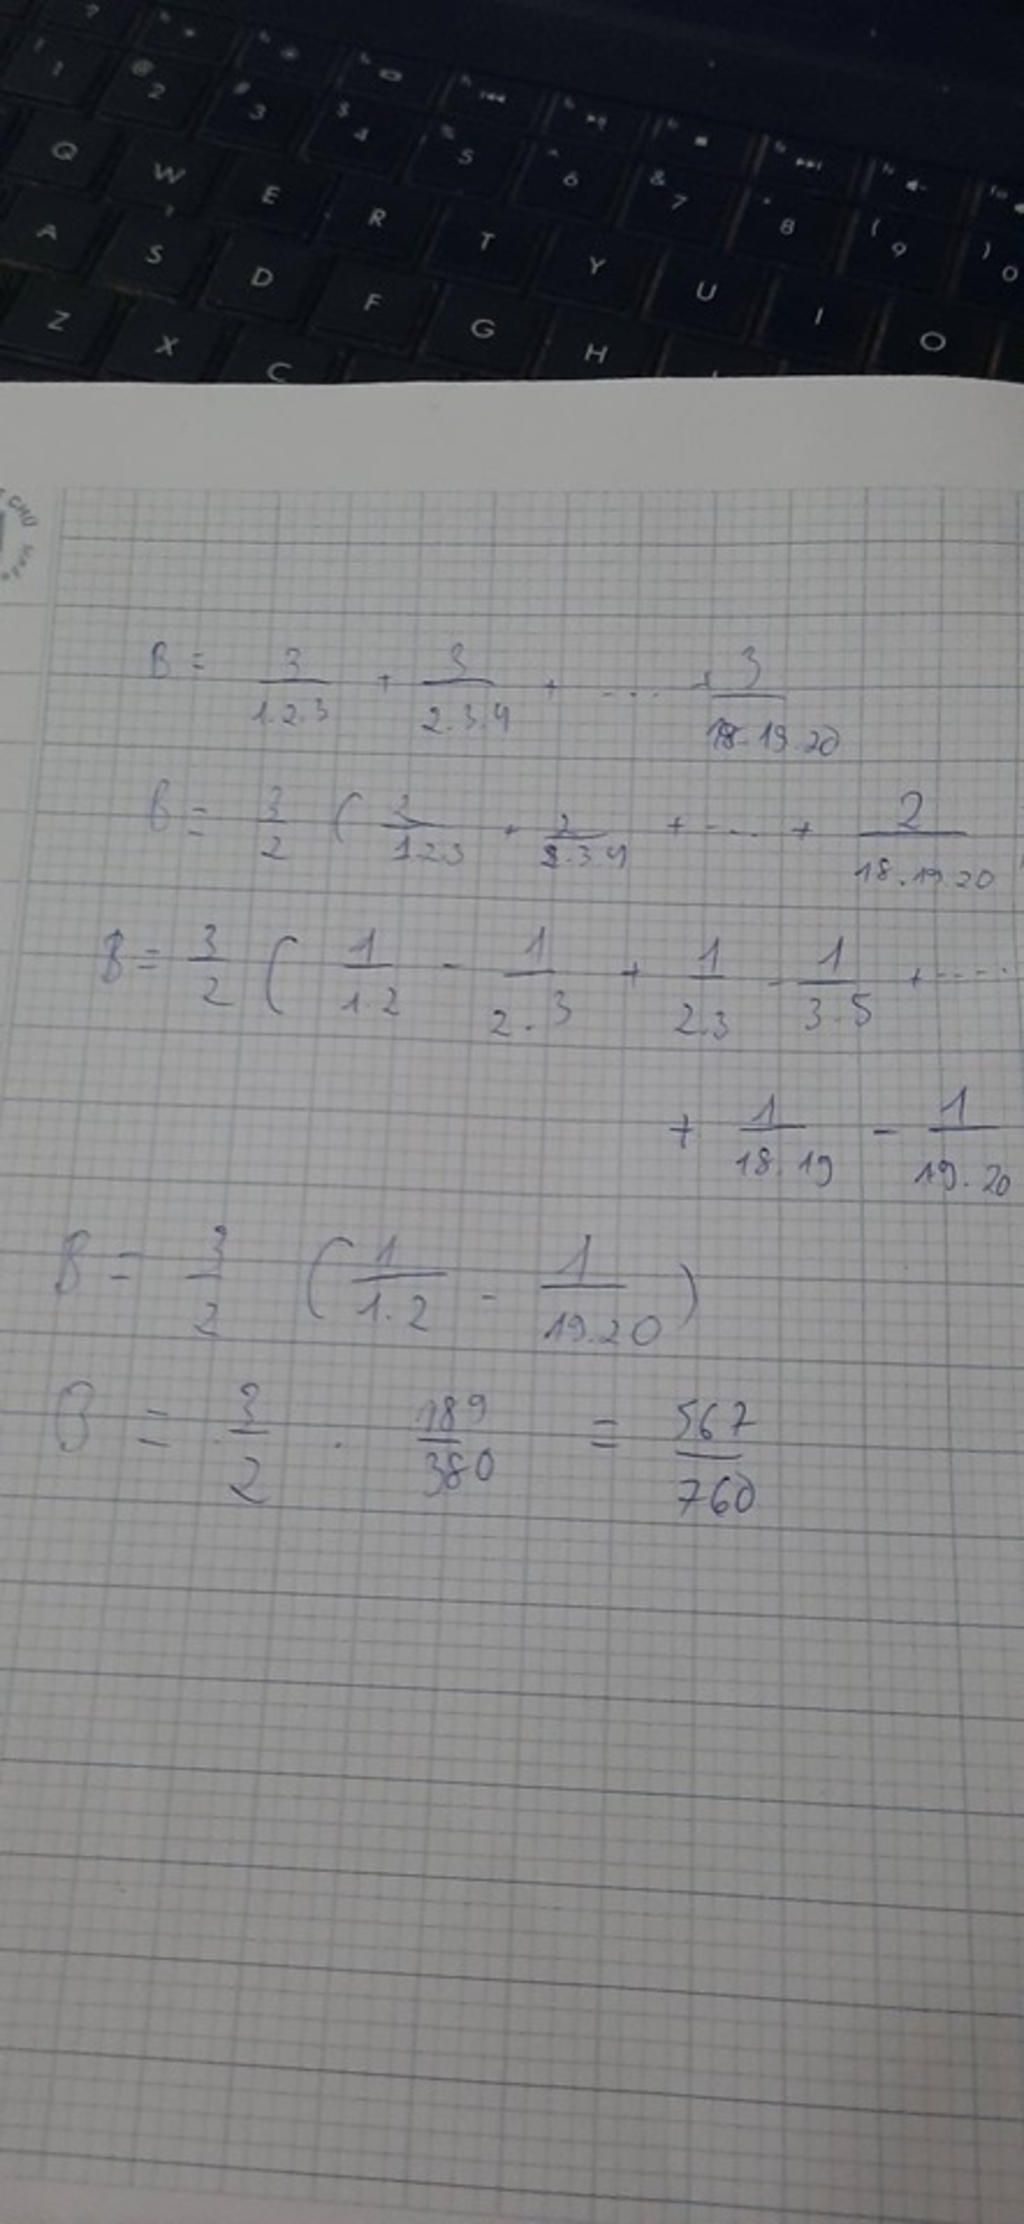 1 @ 2 # 3 $ 4 % 5 ^ 6 & 7 * 8 ( 9 ) 0
Q W E R T Y U I O
A S D F G H
Z X C
B = 3/1.2.3 + 3/2.3.4 + .... + 3/18.19.20
B = 3/2 ( 2/1.2.3 + 2/2.3.4 + .... + 2/18.19.20
B = 3/2 ( 1/1.2 - 1/2.3 + 1/2.3 - 1/3.5 + .....
+ 1/18.19 - 1/19.20
B = 3/2 ( 1/1.2 - 1/19.20 )
B = 3/2 . 189/380 = 567/760